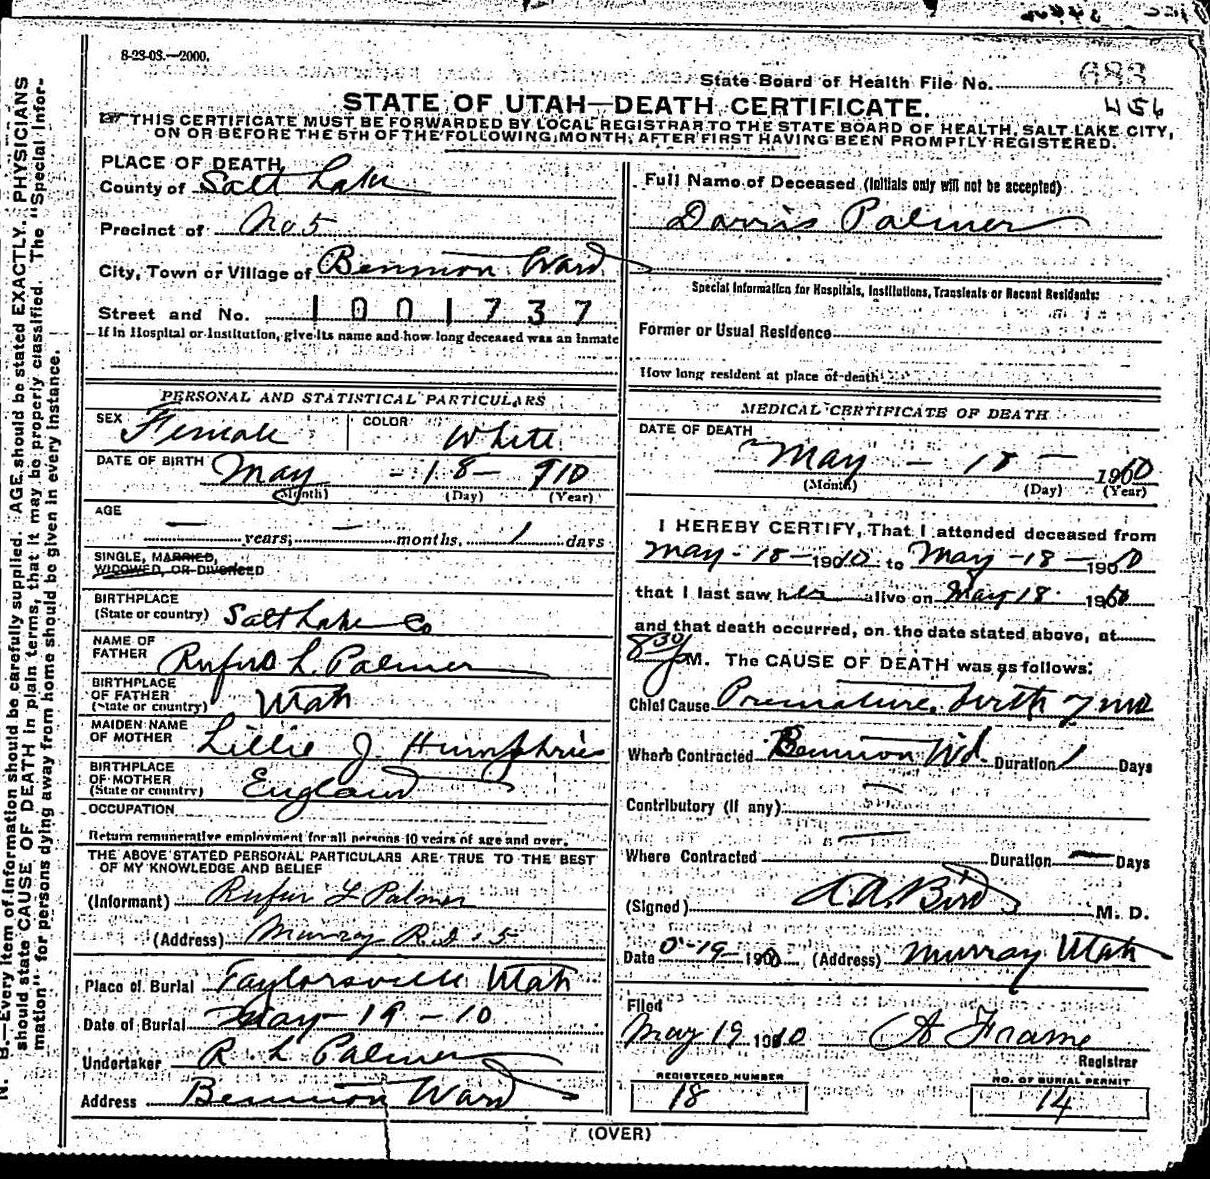 8-23-08.—2000.
State Board of Health File No. 683
STATE OF UTAH—DEATH CERTIFICATE. 456
THIS CERTIFICATE MUST BE FORWARDED BY LOCAL REGISTRAR TO THE STATE BOARD OF HEALTH, SALT LAKE CITY,
ON OR BEFORE THE 5TH OF THE FOLLOWING MONTH, AFTER FIRST HAVING BEEN PROMPTLY REGISTERED.
N. B.—Every item of information should be carefully supplied. AGE should be stated EXACTLY. PHYSICIANS
should state CAUSE OF DEATH in plain terms, that it may be properly classified. The "Special Infor-
mation" for persons dying away from home should be given in every instance.
PLACE OF DEATH
County of Salt Lake
Precinct of No 5
City, Town or Village of Bennion Ward
Street and No. 1001737
If in Hospital or Institution, give its name and how long deceased was an inmate
PERSONAL AND STATISTICAL PARTICULARS
SEX Female COLOR White
DATE OF BIRTH May - 18 - 910
(Month) (Day) (Year)
AGE
— years, — months, 1 days
SINGLE, MARRIED,
WIDOWED, OR DIVORCED
BIRTHPLACE
(State or country) Salt Lake Co
NAME OF
FATHER Rufus L. Palmer
BIRTHPLACE
OF FATHER
(State or country) Utah
MAIDEN NAME
OF MOTHER Lillie J. Humphries
BIRTHPLACE
OF MOTHER
(State or country) England
OCCUPATION
Return remunerative employment for all persons 10 years of age and over.
THE ABOVE STATED PERSONAL PARTICULARS ARE TRUE TO THE BEST
OF MY KNOWLEDGE AND BELIEF
(Informant) Rufus L Palmer
(Address) Murray R.D. 5
Place of Burial Taylorsville Utah
Date of Burial May - 19 - 10
Undertaker R L Palmer
Address Bennion Ward
Full Name of Deceased (Initials only will not be accepted)
Darris Palmer
Special Information for Hospitals, Institutions, Transients or Recent Residents:
Former or Usual Residence
How long resident at place of death
MEDICAL CERTIFICATE OF DEATH
DATE OF DEATH
May - 18 - 1910
(Month) (Day) (Year)
I HEREBY CERTIFY, That I attended deceased from
May - 18 - 1910 to May - 18 - 1910
that I last saw her alive on May 18 1910
and that death occurred, on the date stated above, at
8 30 P M. The CAUSE OF DEATH was as follows:
Chief Cause Premature birth 7 mo
Where Contracted Bennion Wd. Duration 1 Days
Contributory (If any) —
Where Contracted — Duration — Days
(Signed) A.A. Bird M. D.
Date 5-19- 1910 (Address) Murray Utah
Filed
May 19 1910 A Frame
Registrar
REGISTERED NUMBER
18
NO. OF BURIAL PERMIT
14
(OVER)